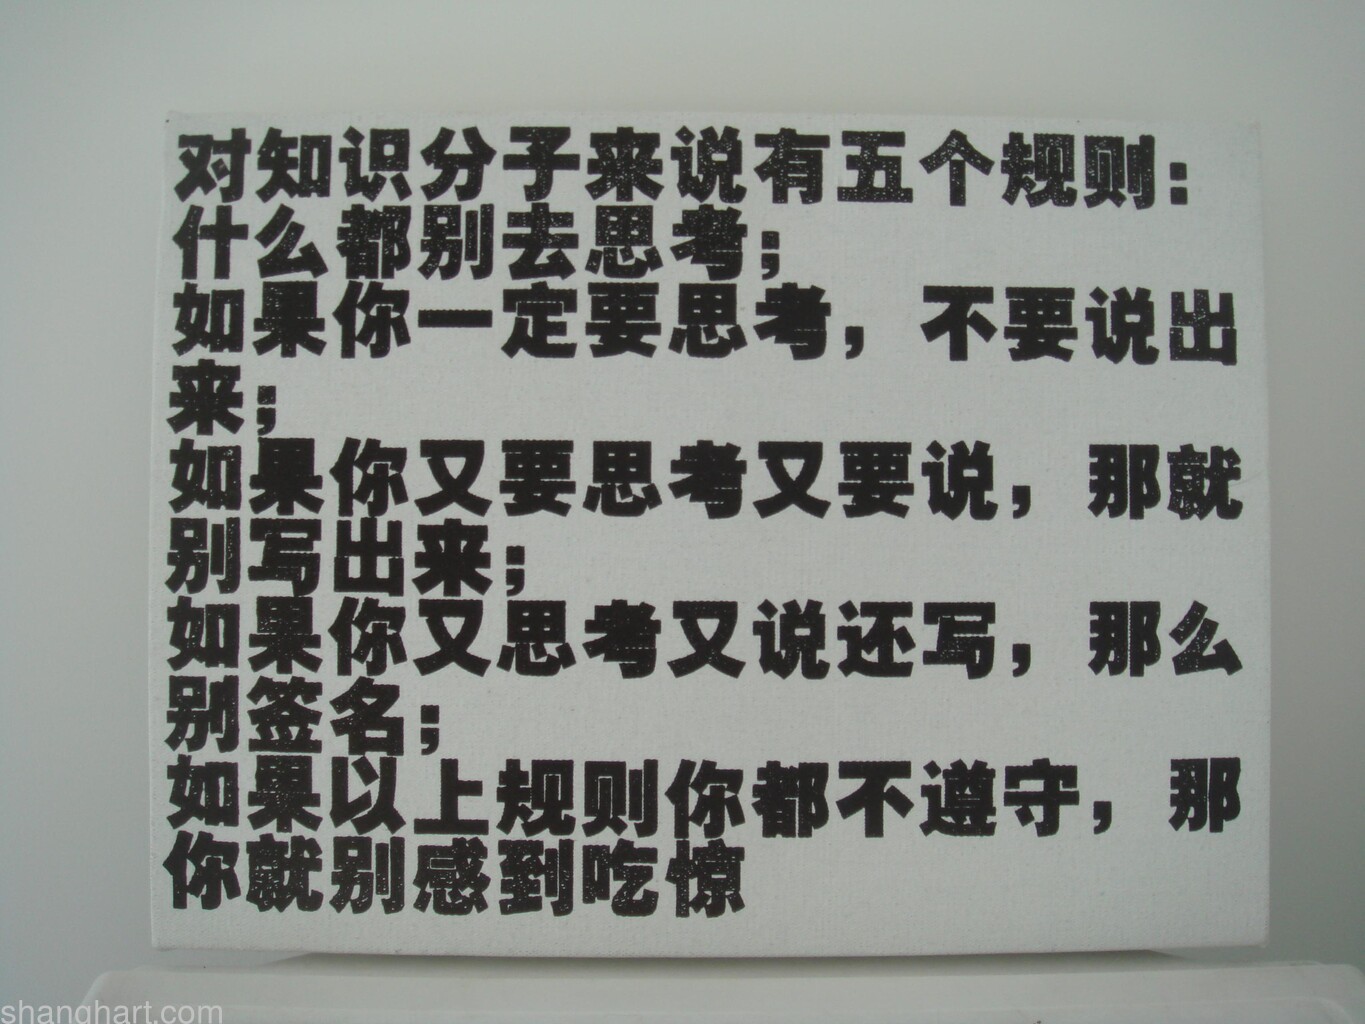 对知识分子来说有五个规则：
什么都别去思考；
如果你一定要思考，不要说出
来；
如果你又要思考又要说，那就
别写出来；
如果你又思考又说还写，那么
别签名；
如果以上规则你都不遵守，那
你就别感到吃惊
shanghart.com